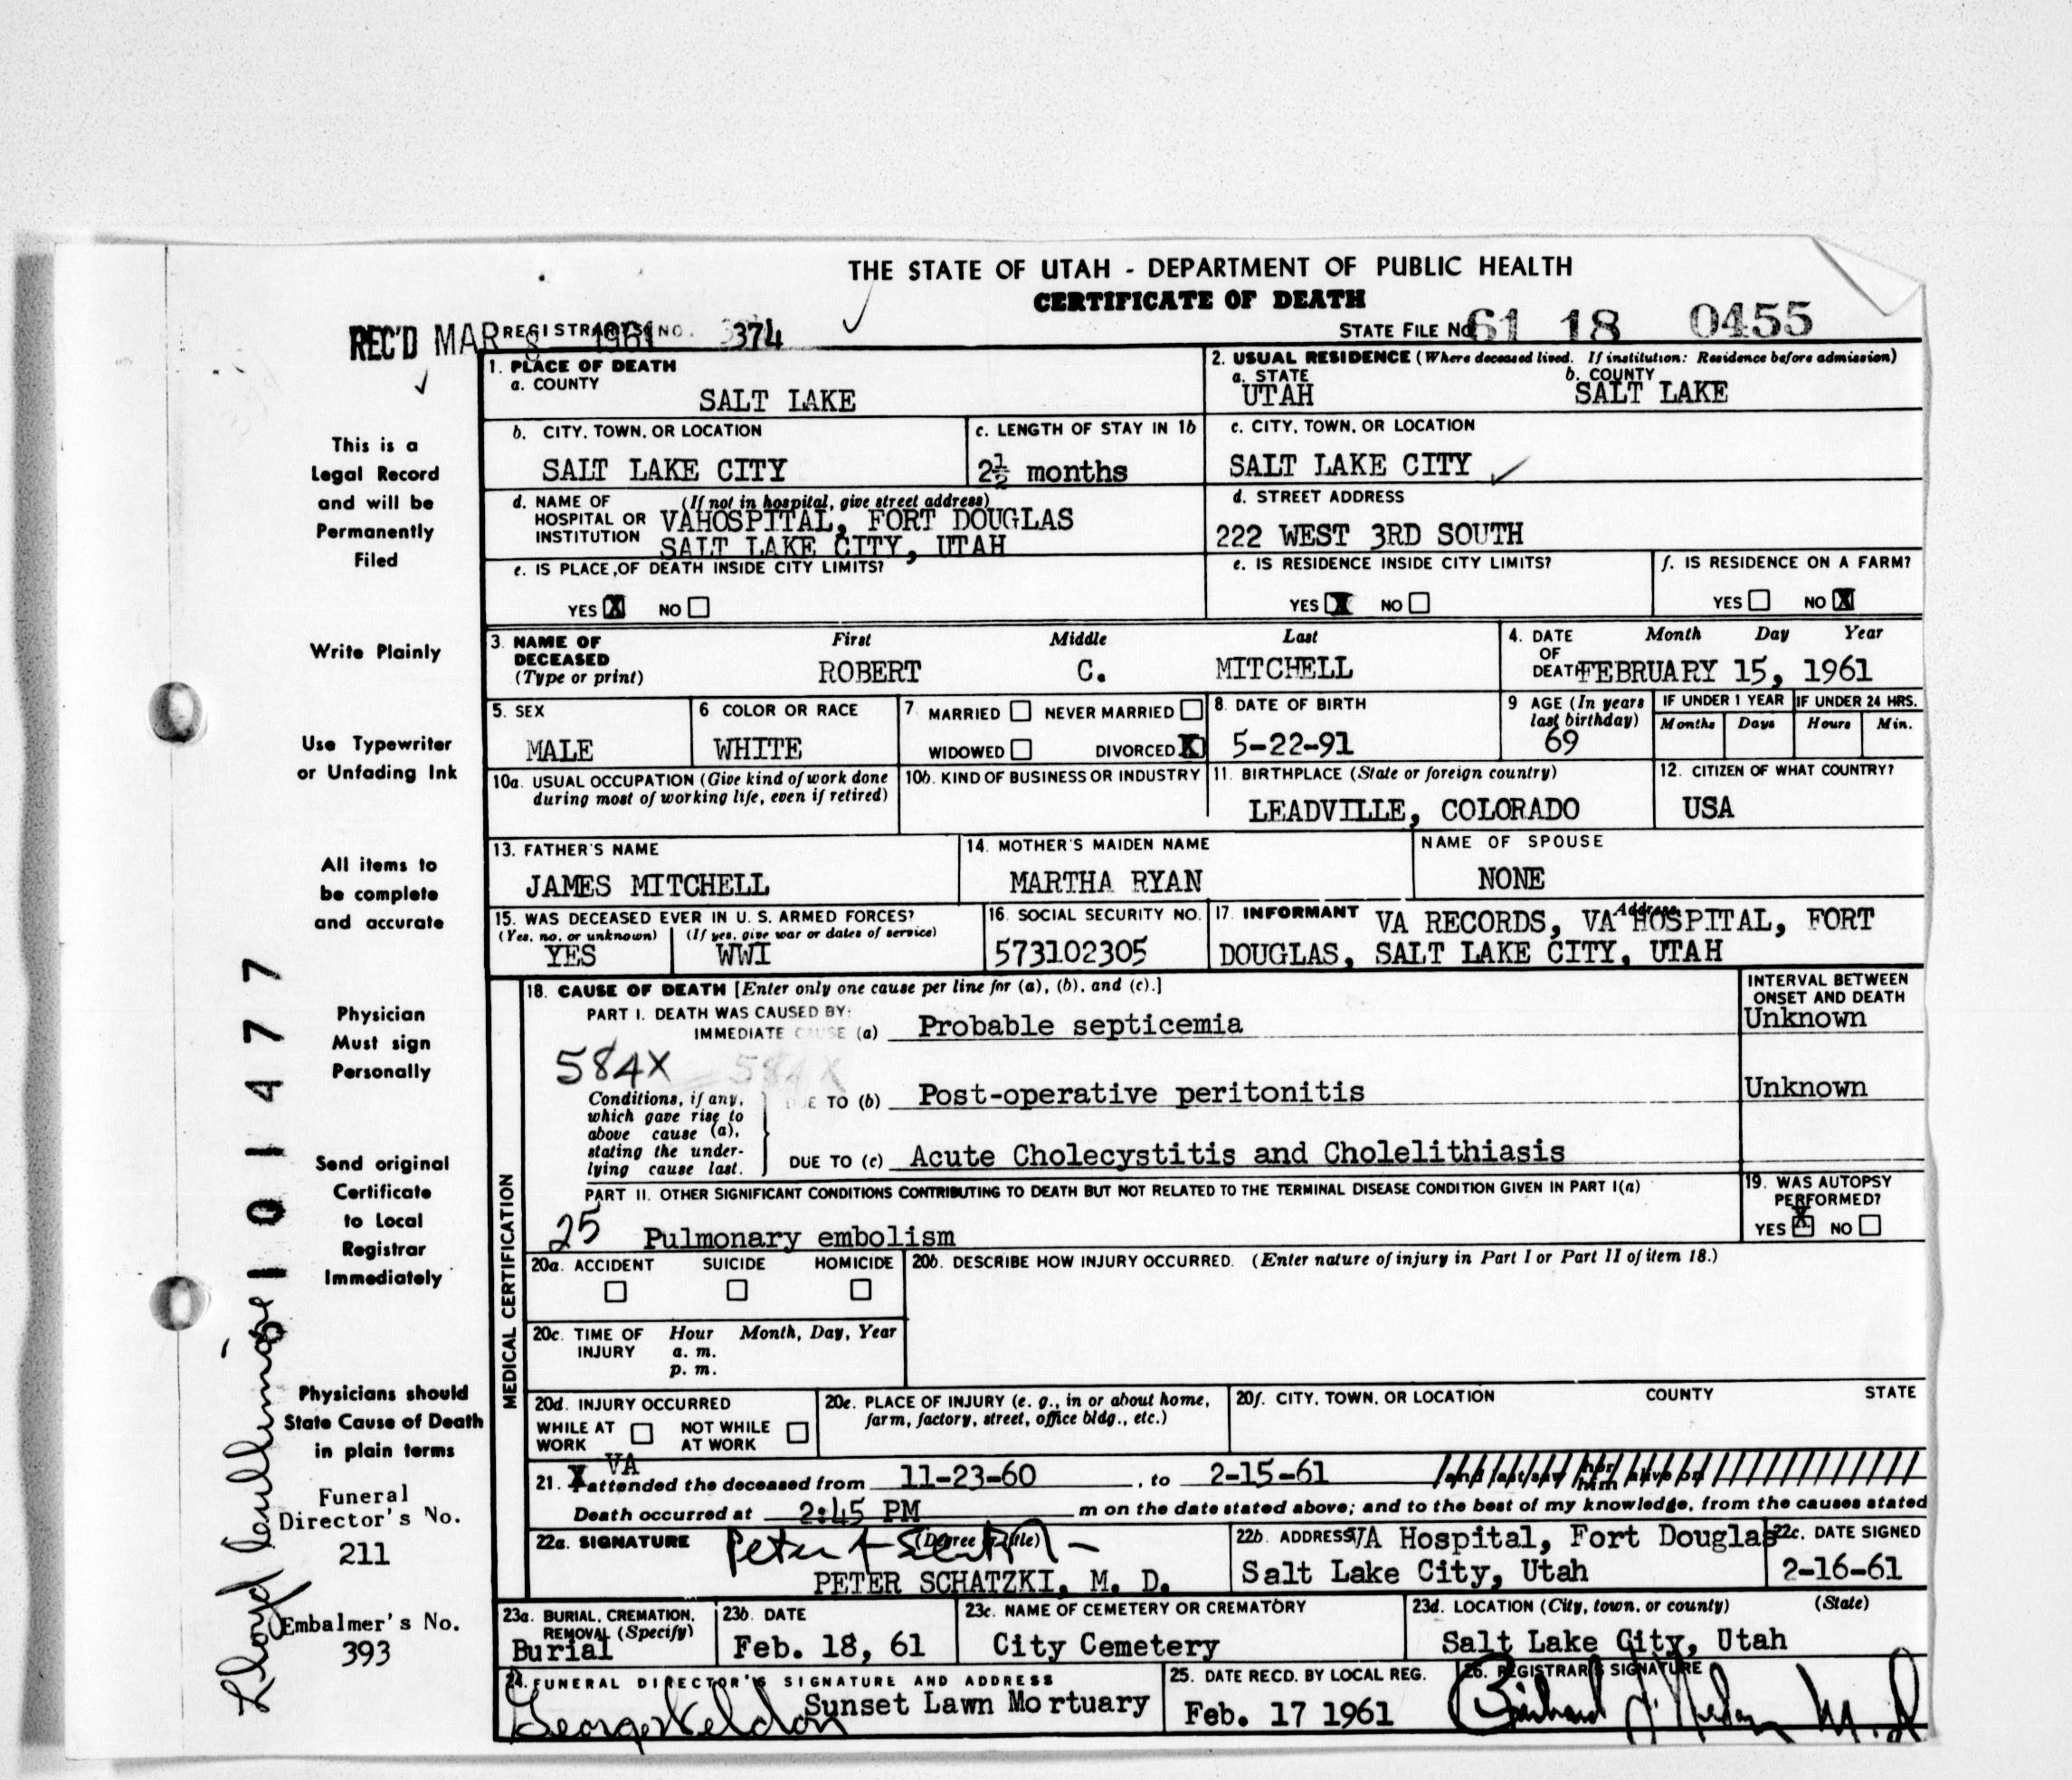 THE STATE OF UTAH - DEPARTMENT OF PUBLIC HEALTH
CERTIFICATE OF DEATH
REC'D MAR 8 1961 REGISTRAR'S NO. 374 STATE FILE No 61 18 0455
1. PLACE OF DEATH
a. COUNTY
SALT LAKE
2. USUAL RESIDENCE (Where deceased lived. If institution: Residence before admission)
a. STATE b. COUNTY
UTAH SALT LAKE
b. CITY, TOWN, OR LOCATION
SALT LAKE CITY
c. LENGTH OF STAY IN 1b
2½ months
c. CITY, TOWN, OR LOCATION
SALT LAKE CITY
d. NAME OF (If not in hospital, give street address)
HOSPITAL OR VAHOSPITAL, FORT DOUGLAS
INSTITUTION SALT LAKE CITY, UTAH
d. STREET ADDRESS
222 WEST 3RD SOUTH
e. IS PLACE OF DEATH INSIDE CITY LIMITS?
YES X NO
e. IS RESIDENCE INSIDE CITY LIMITS?
YES X NO
f. IS RESIDENCE ON A FARM?
YES NO X
3. NAME OF First Middle Last
DECEASED
(Type or print) ROBERT C. MITCHELL
4. DATE Month Day Year
OF
DEATH FEBRUARY 15, 1961
5. SEX
MALE
6 COLOR OR RACE
WHITE
7 MARRIED NEVER MARRIED
WIDOWED DIVORCED X
8. DATE OF BIRTH
5-22-91
9 AGE (In years
last birthday)
69
IF UNDER 1 YEAR IF UNDER 24 HRS.
Months Days Hours Min.
10a. USUAL OCCUPATION (Give kind of work done
during most of working life, even if retired)
10b. KIND OF BUSINESS OR INDUSTRY
11. BIRTHPLACE (State or foreign country)
LEADVILLE, COLORADO
12. CITIZEN OF WHAT COUNTRY?
USA
13. FATHER'S NAME
JAMES MITCHELL
14. MOTHER'S MAIDEN NAME
MARTHA RYAN
NAME OF SPOUSE
NONE
15. WAS DECEASED EVER IN U. S. ARMED FORCES?
(Yes, no, or unknown) (If yes, give war or dates of service)
YES WWI
16. SOCIAL SECURITY NO.
573102305
17. INFORMANT Address
VA RECORDS, VA HOSPITAL, FORT
DOUGLAS, SALT LAKE CITY, UTAH
MEDICAL CERTIFICATION
18. CAUSE OF DEATH [Enter only one cause per line for (a), (b), and (c).]
INTERVAL BETWEEN
ONSET AND DEATH
PART I. DEATH WAS CAUSED BY:
IMMEDIATE CAUSE (a) Probable septicemia Unknown
584X 584X
Conditions, if any,
which gave rise to
above cause (a),
stating the under-
lying cause last.
DUE TO (b) Post-operative peritonitis Unknown
DUE TO (c) Acute Cholecystitis and Cholelithiasis
PART II. OTHER SIGNIFICANT CONDITIONS CONTRIBUTING TO DEATH BUT NOT RELATED TO THE TERMINAL DISEASE CONDITION GIVEN IN PART I(a)
25 Pulmonary embolism
19. WAS AUTOPSY
PERFORMED?
YES X NO
20a. ACCIDENT SUICIDE HOMICIDE
20b. DESCRIBE HOW INJURY OCCURRED. (Enter nature of injury in Part I or Part II of item 18.)
20c. TIME OF Hour Month, Day, Year
INJURY a. m.
p. m.
20d. INJURY OCCURRED
WHILE AT NOT WHILE
WORK AT WORK
20e. PLACE OF INJURY (e. g., in or about home,
farm, factory, street, office bldg., etc.)
20f. CITY, TOWN, OR LOCATION COUNTY STATE
21. X VA attended the deceased from 11-23-60, to 2-15-61 and last saw her him alive on
Death occurred at 2:45 PM m on the date stated above; and to the best of my knowledge, from the causes stated
22a. SIGNATURE (Degree or title)
PETER SCHATZKI, M. D.
22b. ADDRESS VA Hospital, Fort Douglas
Salt Lake City, Utah
22c. DATE SIGNED
2-16-61
23a. BURIAL, CREMATION,
REMOVAL (Specify)
Burial
23b. DATE
Feb. 18, 61
23c. NAME OF CEMETERY OR CREMATORY
City Cemetery
23d. LOCATION (City, town, or county) (State)
Salt Lake City, Utah
24. FUNERAL DIRECTOR'S SIGNATURE AND ADDRESS
Sunset Lawn Mortuary
25. DATE RECD. BY LOCAL REG.
Feb. 17 1961
26. REGISTRAR'S SIGNATURE
M.D
This is a
Legal Record
and will be
Permanently
Filed
Write Plainly
Use Typewriter
or Unfading Ink
All items to
be complete
and accurate
Physician
Must sign
Personally
Send original
Certificate
to Local
Registrar
Immediately
Physicians should
State Cause of Death
in plain terms
Funeral
Director's No.
211
Embalmer's No.
393
Lloyd
101477